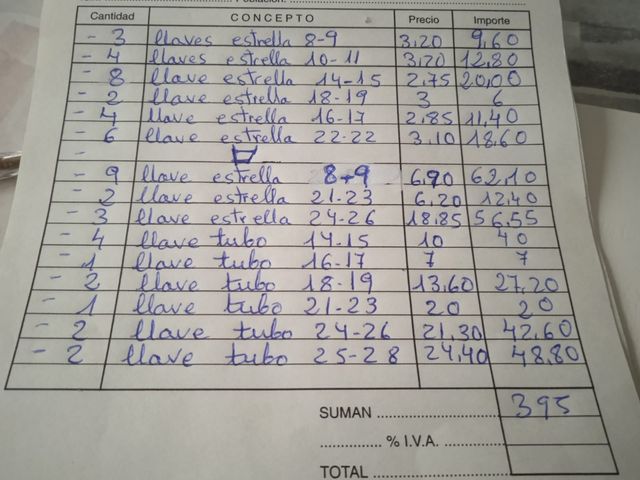 Cantidad CONCEPTO Precio Importe
- 3 llaves estrella 8-9 3,20 9,60
- 4 llaves estrella 10-11 3,20 12,80
- 8 llave estrella 14-15 2,75 20,00
- 2 llave estrella 18-19 3 6
- 4 llave estrella 16-17 2,85 11,40
- 6 llave estrella 22-22 3,10 18,60
-
- 9 llave estrella 8-9 6,90 62,10
- 2 llave estrella 21-23 6,20 12,40
- 3 llave estrella 24-26 18,85 56,55
- 4 llave tubo 14-15 10 40
- 1 llave tubo 16-17 7 7
- 2 llave tubo 18-19 13,60 27,20
- 1 llave tubo 21-23 20 20
- 2 llave tubo 24-26 21,30 42,60
- 2 llave tubo 25-28 24,40 48,80
SUMAN 395
% I.V.A.
TOTAL